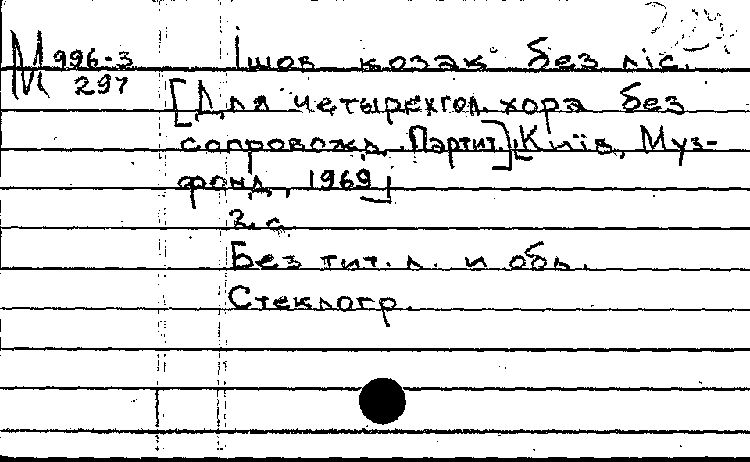 М 996-3
297
Ішов козак без ліс.
[Для четырехгол. хора без
сопровожд. Партит.] [Київ, Муз-
фонд, 1969]
2 с.
Без тит. л. и обл.
Стеклогр.